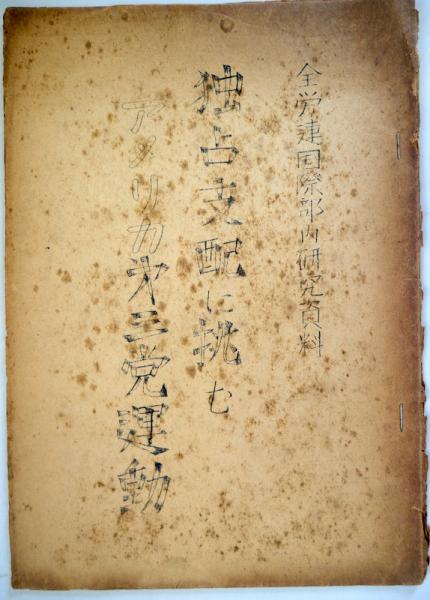 全労連国際部内研究資料
独占支配に挑む
アメリカ才三党運動